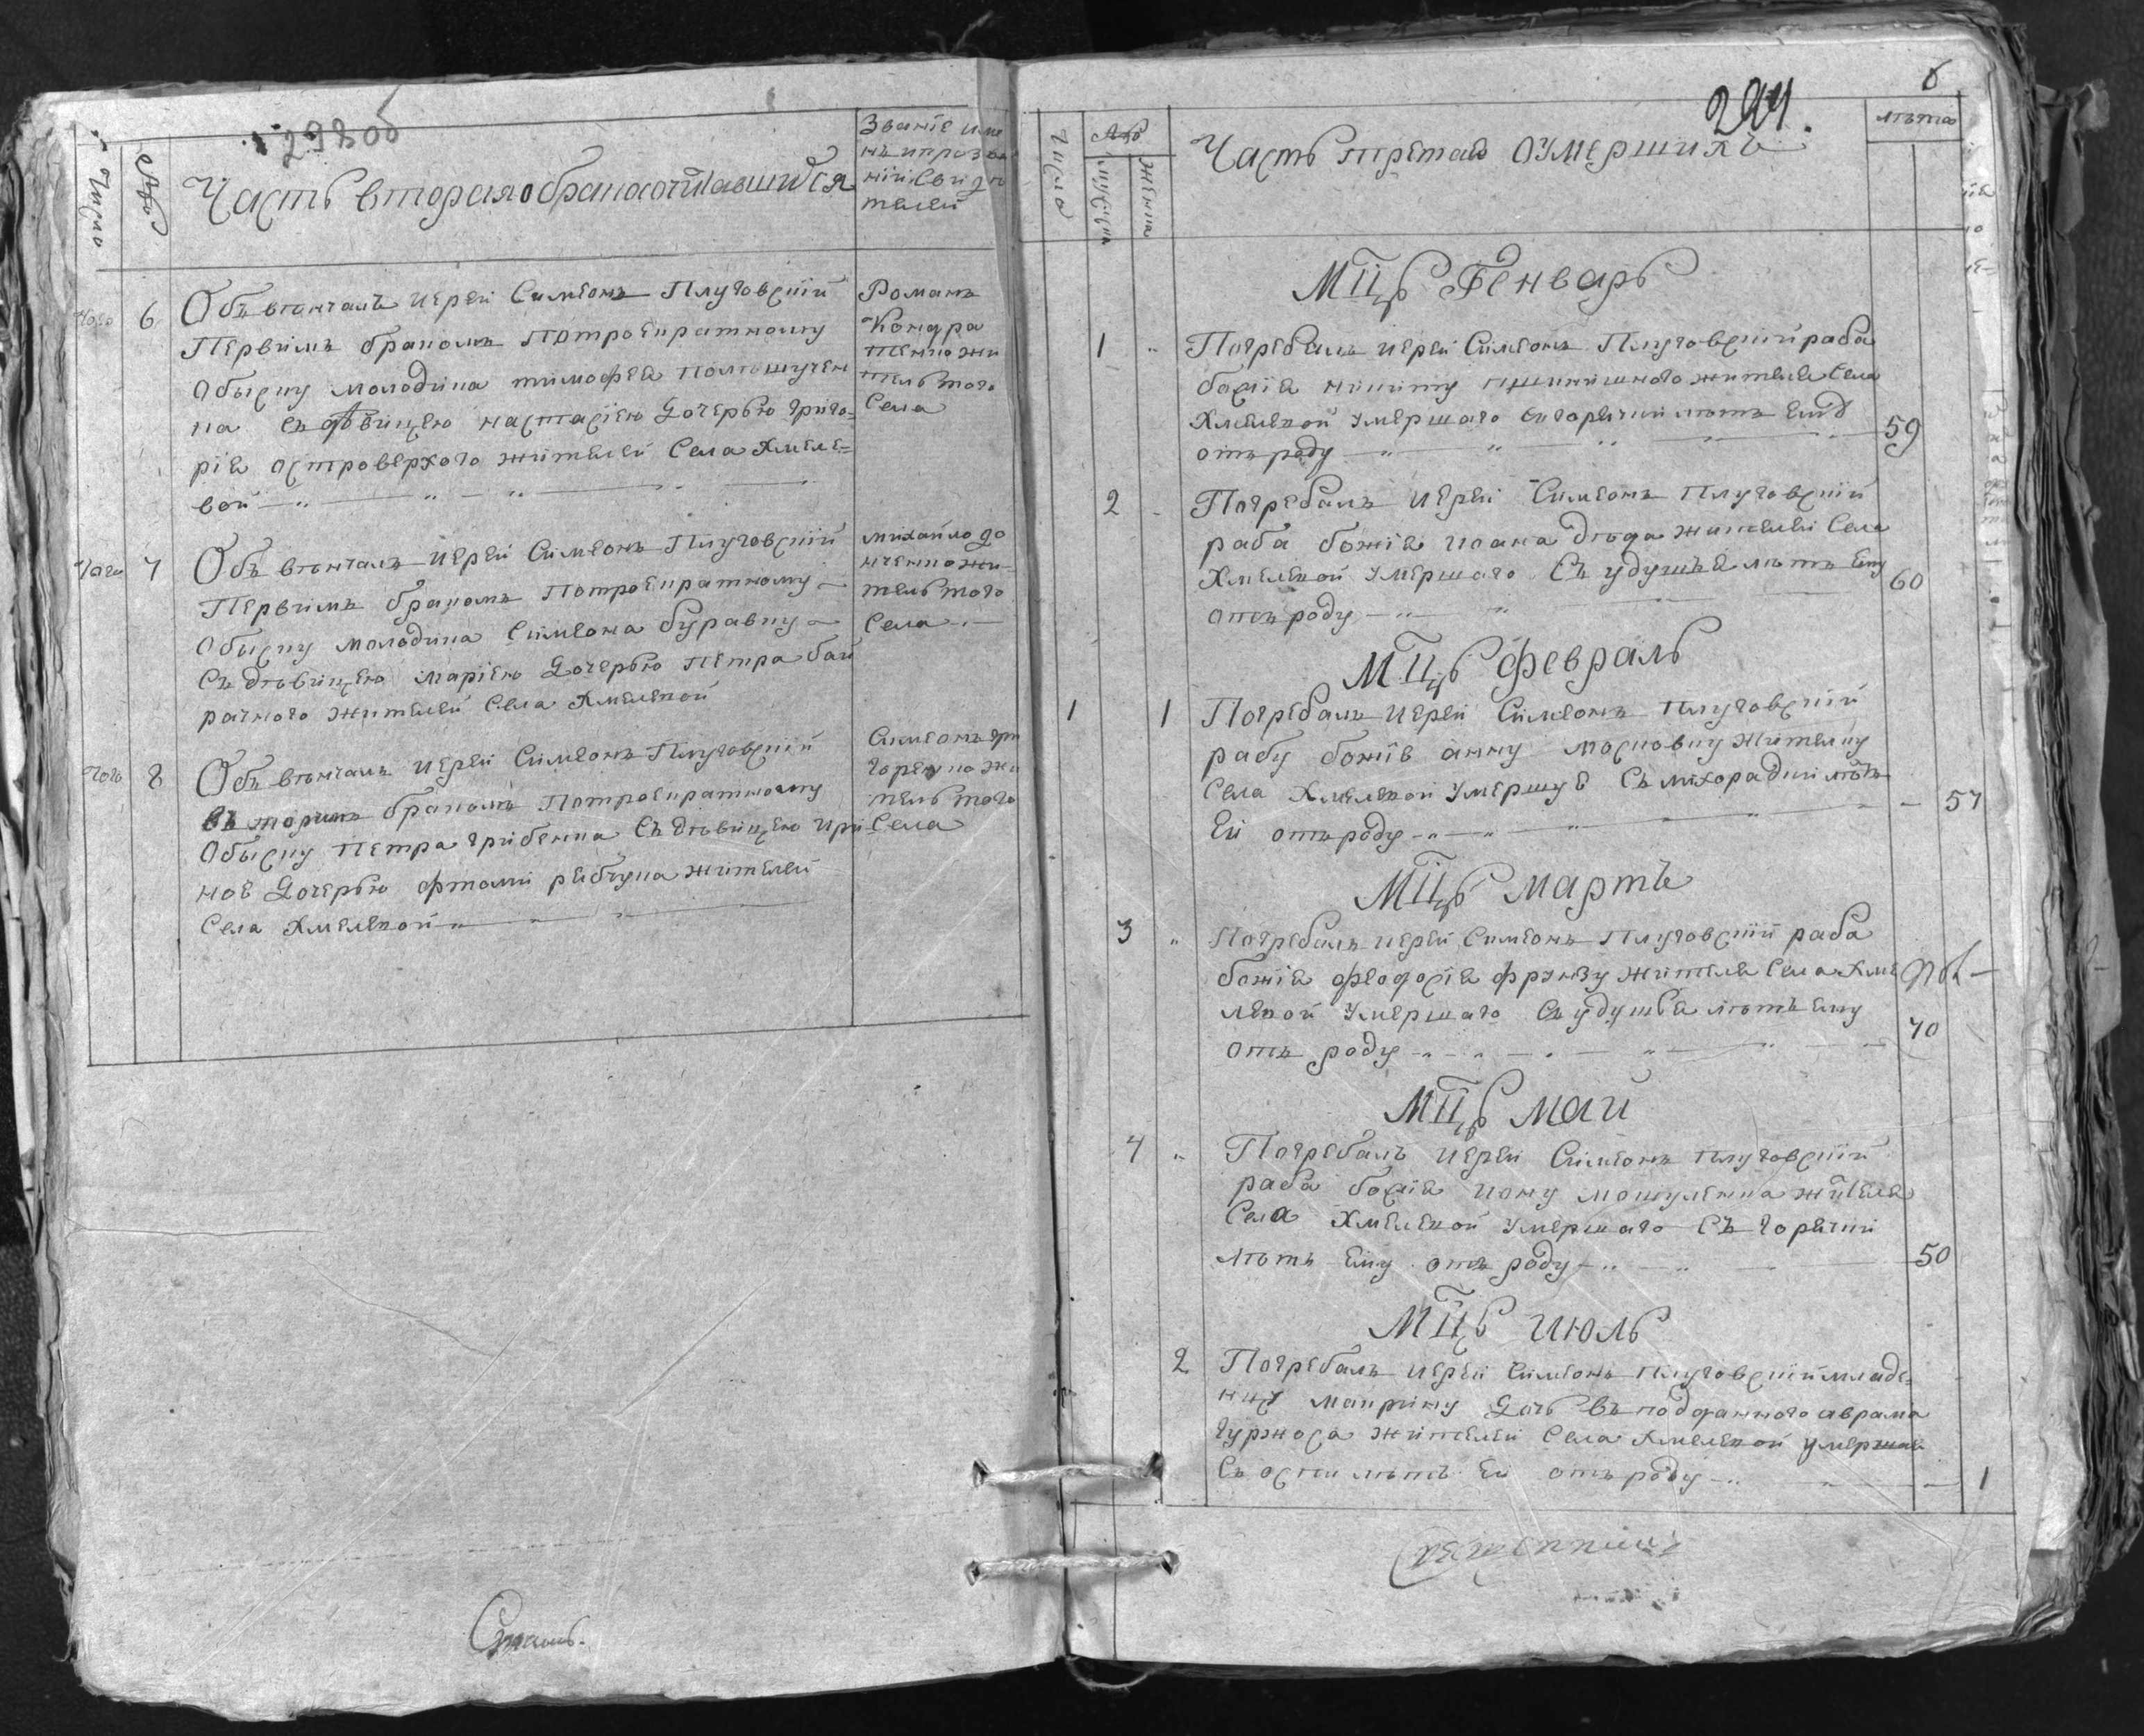 293об
Число
№
Часть вторая о бракосочтавшихся
Званіе име
нъ и прозва
ній свиде
телей
того 6 Объ венчалъ иерей Симеонъ Плуговскій
Первимъ бракомъ По троекратному
Обыску молодика тимофея
ка съ девицею настасіею Дочерью григо-
рія островерхого жителей Села Хмеле-
вой
Романъ
Кондра
тенко жи
тель того
Села
того 7 Объ венчалъ иерей Симеонъ Плуговскій
Первимъ бракомъ По троекратному
Обыску молодика Симеона буравку
Съ девицею маріею Дочерью Петра бай
рачного жителей Села Хмелевой
михайло до
нченко жи-
тель того
Села
того 8 Объ венчалъ иерей Симеонъ Плуговскій
въ торимъ бракомъ По троекратному
Обыску Петра грибенка Съ девицею ири
ною Дочерью жителей
Села Хмелевой
Симеонъ гри
горенко жи
тель того
Села
6
294.
Числа
№
мужска
женска
Часть третая о умершихъ
лета
Мцъ Генварь
1 Погребалъ иерей Симеонъ Плуговскій раба
божія никиту жителя Села
Хмелевой Умершаго съ горячки летъ Ему
отъ роду 59
2 Погребалъ иерей Симеонъ Плуговскій
раба божія иоана деда жителей Села
Хмелевой Умершаго Съ удушья летъ Ему
отъ роду 60
Мцъ февраль
1 1 Погребалъ иерей Симеонъ Плуговскій
рабу божію анну жителку
Села Хмелевой Умершую Съ лихорадки летъ
Ей отъ роду 57
Мцъ мартъ
3 Погребалъ иерей Симеонъ Плуговскій раба
божія феодосія фрунзу жителя Села Хме
левой Умершаго Съ удушья летъ ему
отъ роду 70
Мцъ май
4 Погребалъ иерей Симеонъ Плуговскій
раба божія иону жителя
Села Хмелевой Умершаго Съ горячки
летъ Ему отъ роду 50
Мцъ июль
2 Погребалъ иерей Симеонъ Плуговскій младе-
ницу Дочь подданного аврама
жителей Села Хмелевой умершая
Съ оспи летъ Ей отъ роду 1